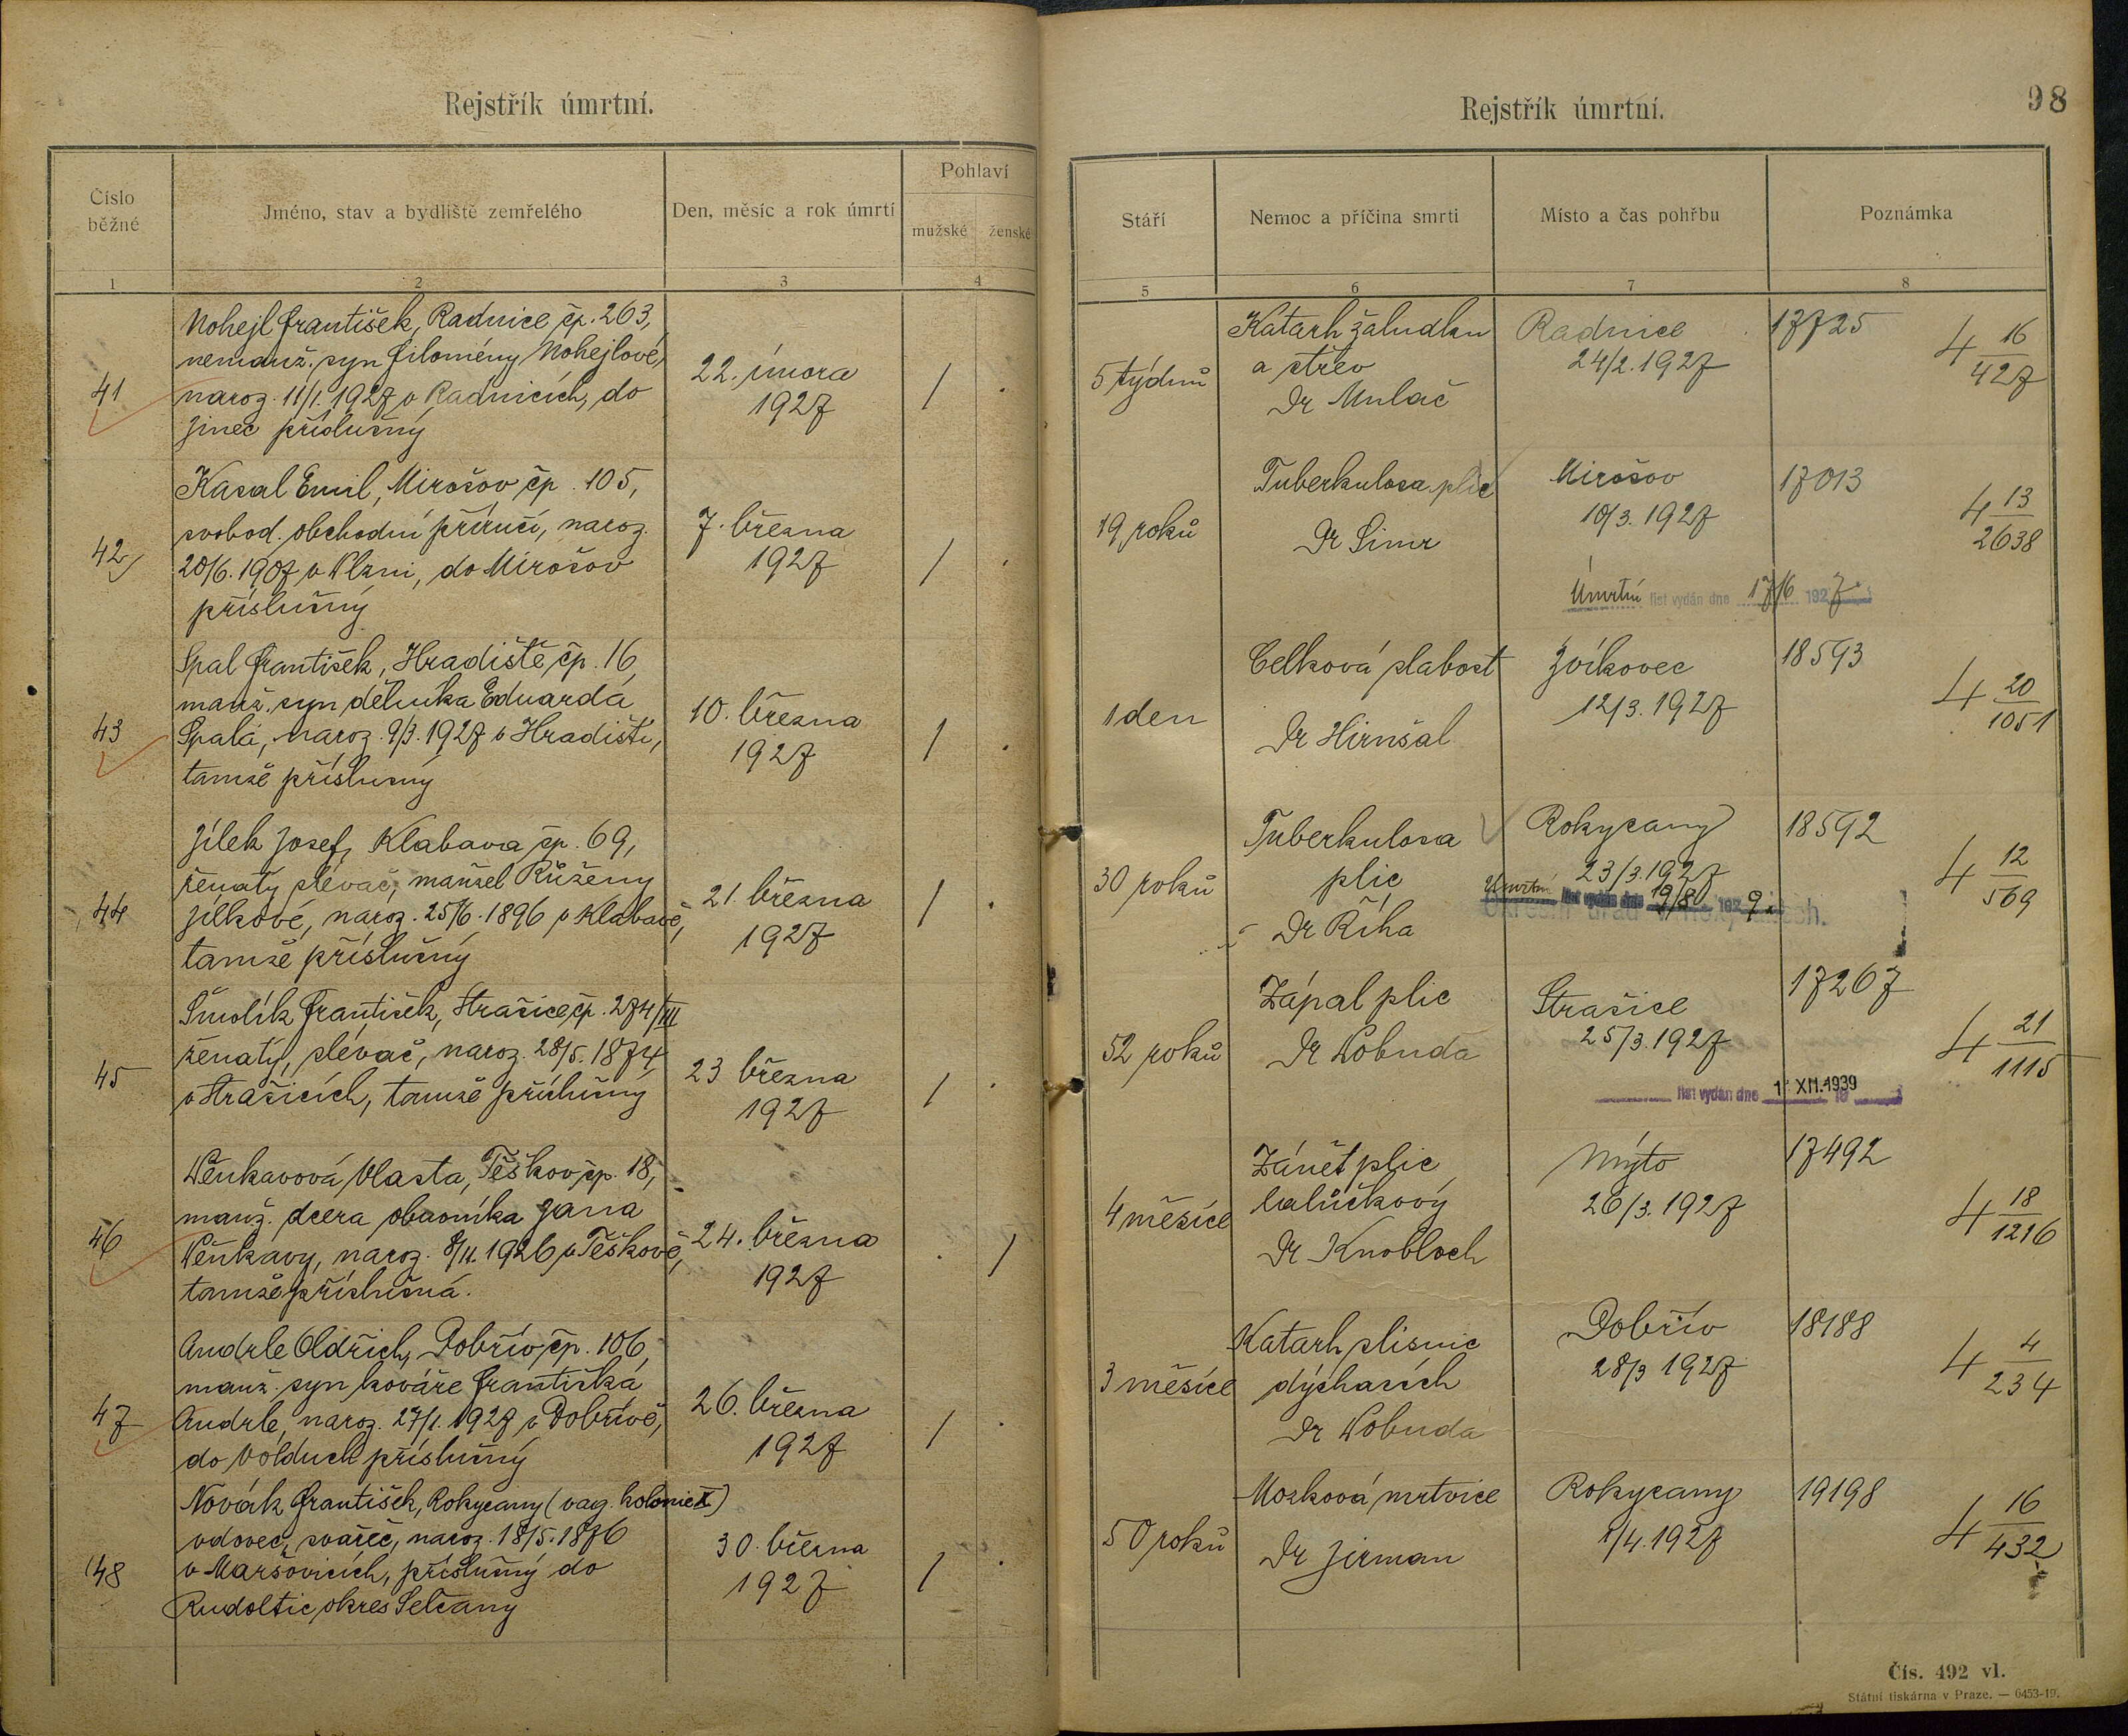 Rejstřík úmrtní.
Číslo běžné
Jméno, stav a bydliště zemřelého
Den, měsíc a rok úmrtí
Pohlaví
mužské ženské
1 2 3 4
Nohejl František, Radnice čp. 263,
nemanž. syn Filomény Nohejlové,
41 naroz. 11/1. 1927 v Radnicích, do
Jinec příslušný
22. února
1927
/ .
Kasal Emil, Mirošov čp. 105,
svobod. obchodní příručí, naroz.
42 20/6. 1907 v Plzni, do Mirošov
příslušný
7. března
1927
/ .
Spal František, Hradiště čp. 16,
manž. syn dělníka Eduarda
43 Spala, naroz. 9/3. 1927 v Hradišti,
tamže příslušný
10. března
1927
/ .
Jílek Josef, Klabava čp. 69,
ženatý slévač, manžel Růženy
44 Jílkové, naroz. 25/6. 1896 v Klabavě,
tamže příslušný
21. března
1927
/ .
Šmolík František, Strašice čp. 274/III
ženatý, slévač, naroz. 28/5. 1874
45 v Strašicích, tamže příslušný
23 března
1927
/ .
Věnkavová Vlasta, Těškov čp. 18,
manž. dcera obuvníka Jana
46 Věnkavy, naroz. 8/11. 1926 v Těškově,
tamže příslušná.
24. března
1927
. /
Andrle Oldřich, Dobřív čp. 106,
manž. syn kováře Františka
47 Andrle, naroz. 27/1. 1927 v Dobřívě,
do Volduch příslušný
26. března
1927
/ .
Novák František, Rokycany (vag. kolonie X)
vdovec, svářeč, naroz. 18/5. 1876
48 v Maršovicích, příslušný do
Rudoltic okres Selčany
30. března
1927
/ .
Rejstřík úmrtní.
98
Stáří
Nemoc a příčina smrti
Místo a čas pohřbu
Poznámka
5 6 7 8
5 týdnů
Katarh žaludku
a střev
Dr Mulač
Radnice
24/2. 1927
17725
4 16/427
19 roků
Tuberkulosa plic
Dr Simr
Mirošov
10/3. 1927
Úmrtní list vydán dne 17/6 1927
17013
4 13/2638
1 den
Celková slabost
Dr Hirnšal
Zvíkovec
12/3. 1927
18593
4 20/1051
30 roků
Tuberkulosa
plic
Dr Říha
Rokycany
23/3. 1927
Úmrtní list vydán dne 19/8 1929
18592
4 12/569
52 roků
Zápal plic
Dr Wobuda
Strašice
25/3. 1927
list vydán dne 1 XII. 1939
17267
4 21/1115
4 měsíce
Zánět plic
lalůčkový
Dr Knobloch
Mýto
26/3. 1927
17492
4 18/1216
3 měsíce
Katarh sliznic
dýchacích
Dr Wobuda
Dobřív
28/3 1927
18188
4 4/234
50 roků
Mozková mrtvice
Dr Jirman
Rokycany
1/4. 1927
19198
4 16/432
Čís. 492 vl.
Státní tiskárna v Praze. — 6453-19.